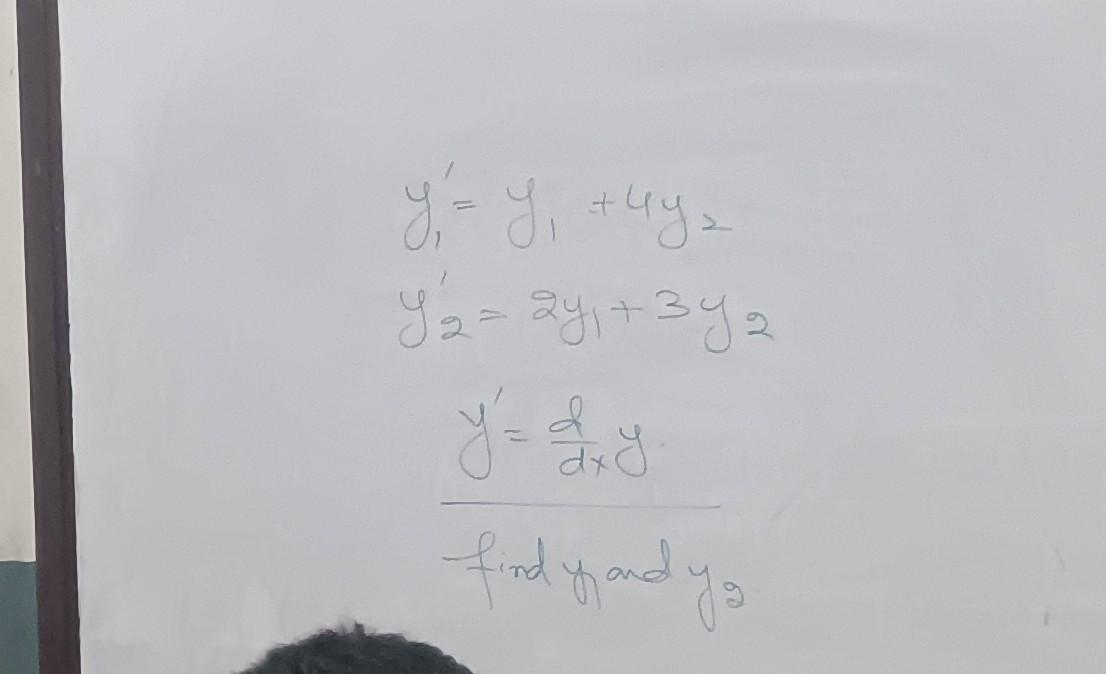 y₁' = y₁ + 4y₂
y₂' = 2y₁ + 3y₂
y' = d/dx y
find y₁ and y₂